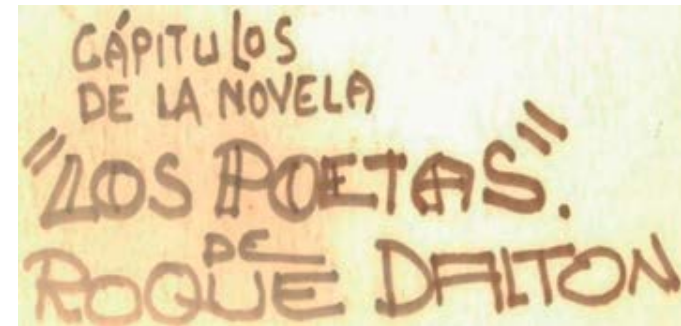 CÁPITULOS
DE LA NOVELA
"LOS POETAS".
DE
ROQUE DALTON